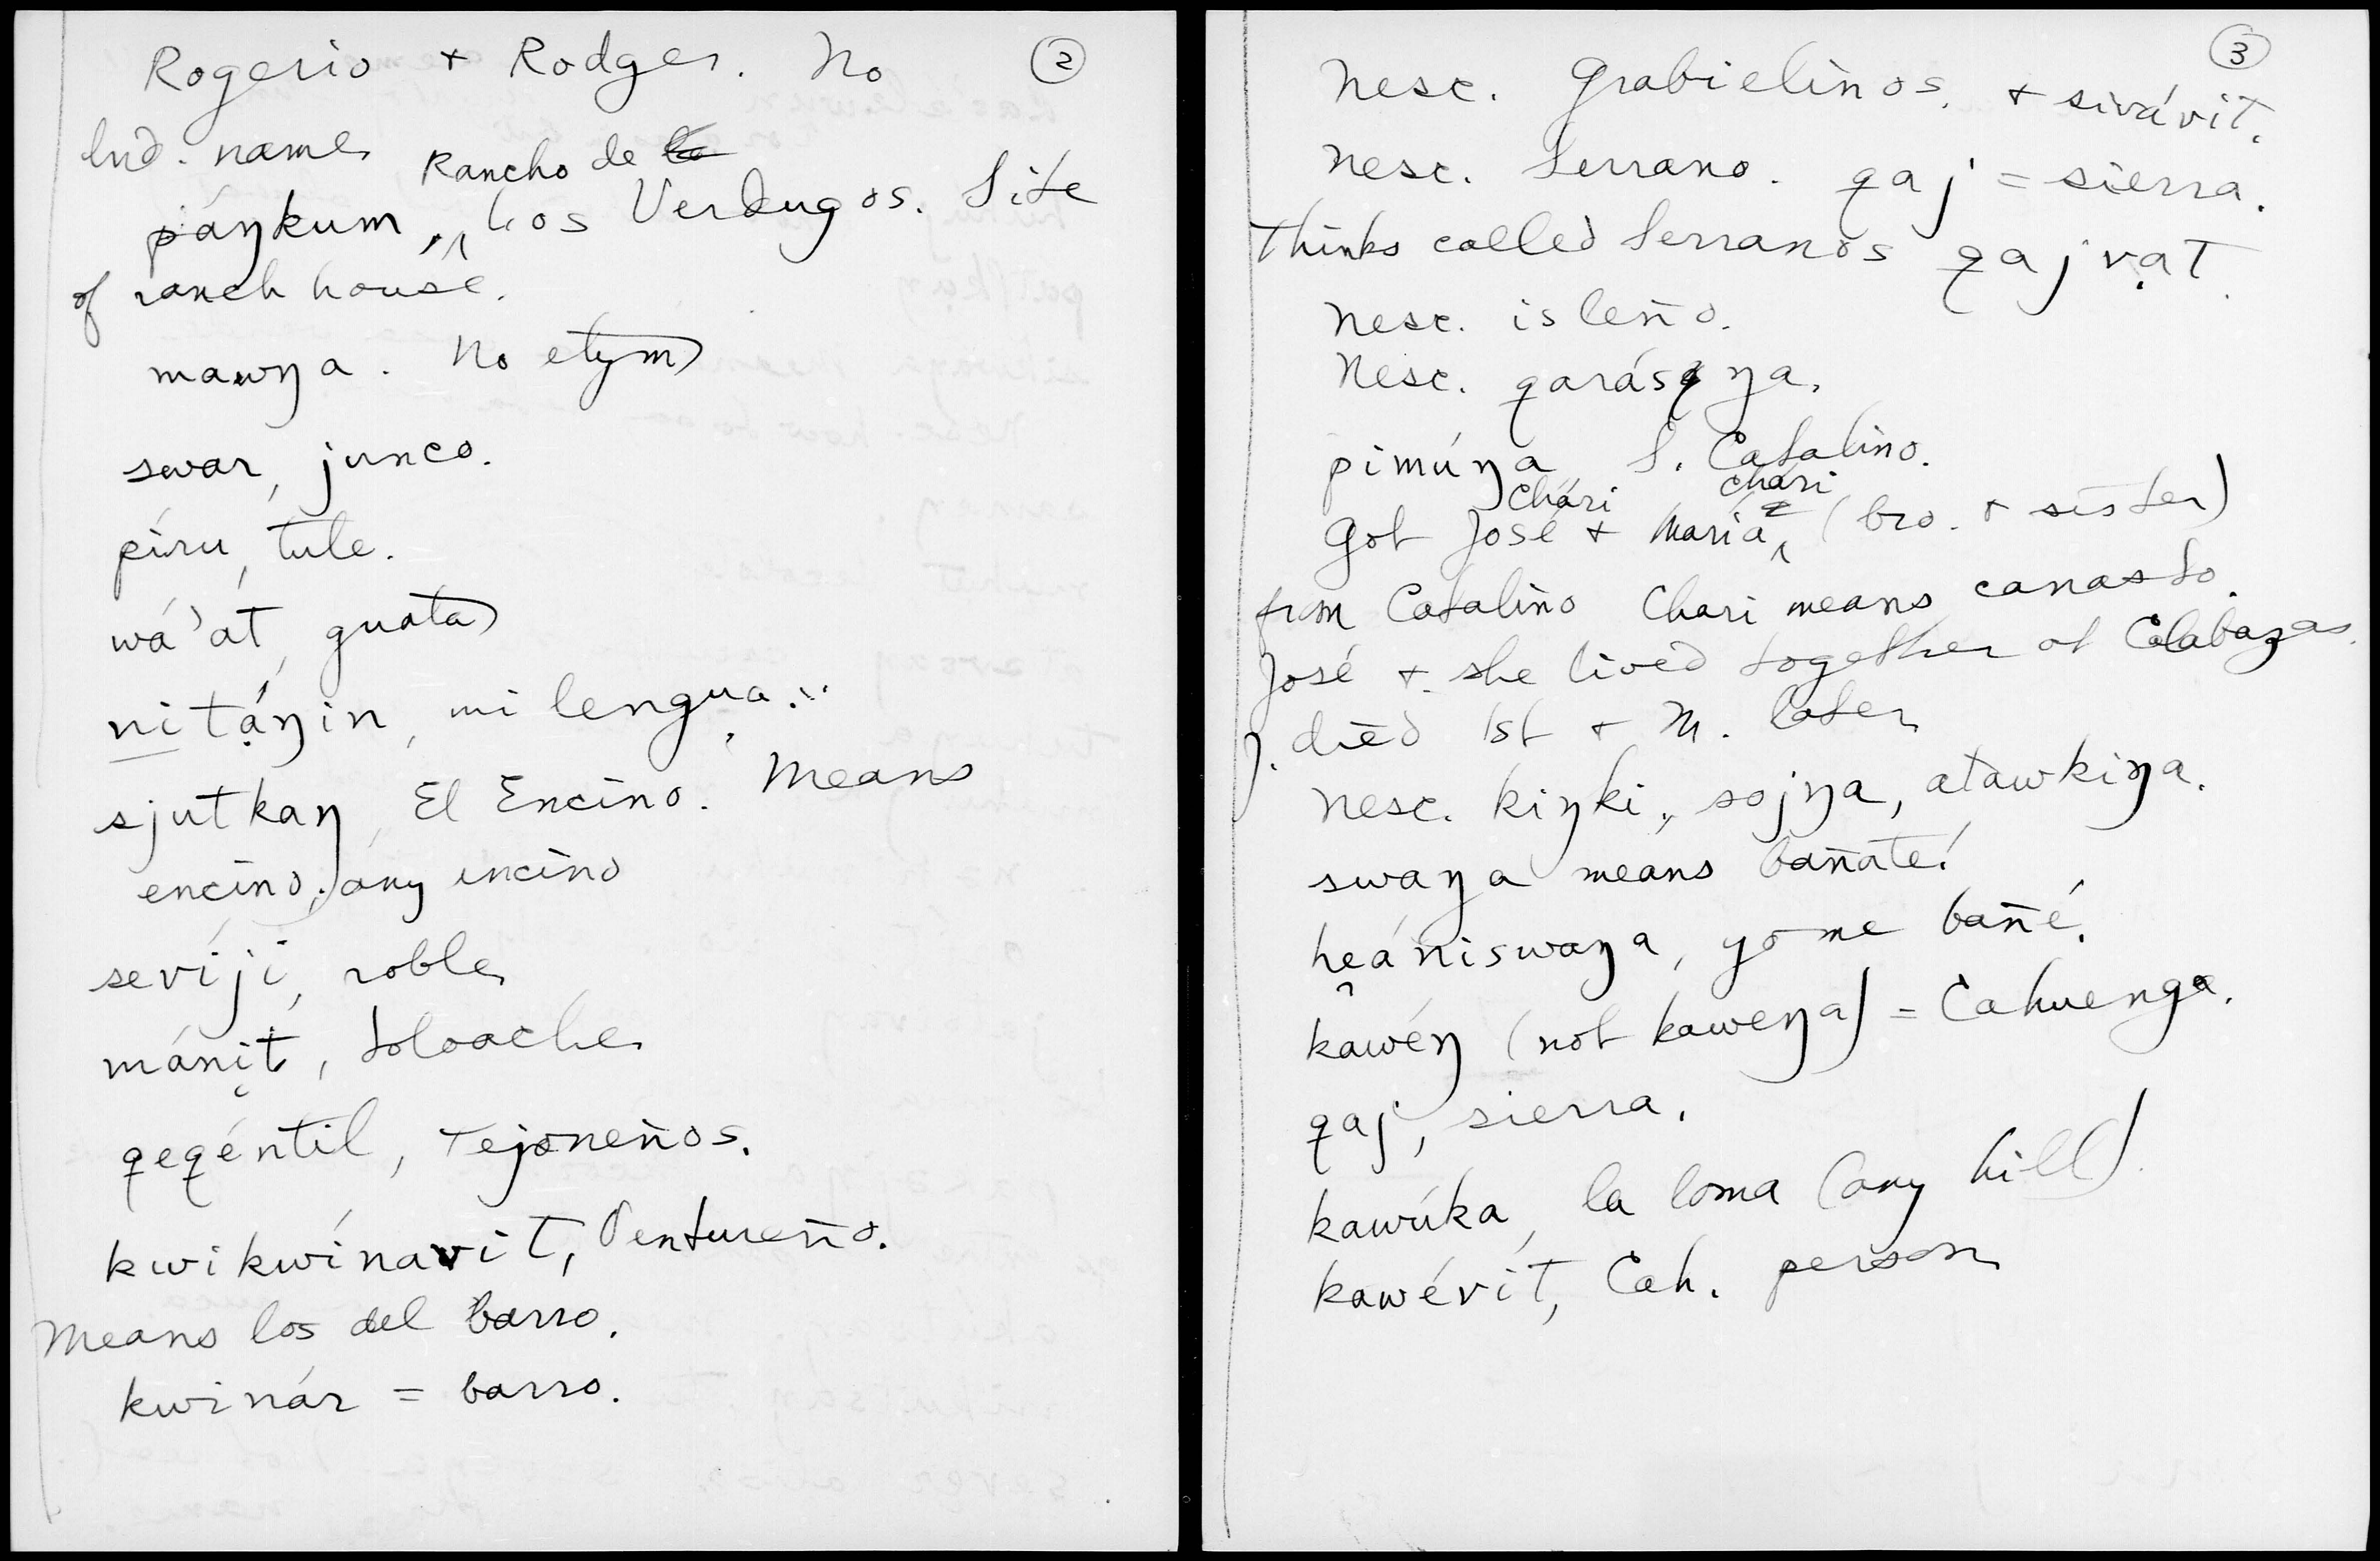 ②
Rogerio + Rodger. No
Ind. name
páŋkum, Rancho de Los Verdugos. Site
of ranch house.
mawŋa. No etym
swar, junco.
píru, tule.
wá'at, guata
nitạ́ŋin, mi lengua.
sjutkaŋ, El Encino. Means
encino, any encino
sevíji, roble
mánịt, toloache
qeqéntil, Tejoneños.
kwikwínavit, Ventureño.
Means los del barro.
kwinár = barro.
③
Nesc. Grabielinos. + sivávit.
Nesc. Serrano. qaj = sierra.
Thinks called Serranos qajvạt.
Nesc. isleño.
Nesc. qarásŋa.
pimúŋa, S. Catalina.
Chári chári
Got José + María (bro. + sister)
from Catalina Chari means canasta.
José + she lived together at Calabazas.
J. died 1st + M. later
Nesc. kiŋki, sojŋa, atawkiŋa.
swaŋa means bañate!
hẹániswaŋa, yo me bañé.
kawéŋ (not kaweŋa) = Cahuenga.
qaj, sierra.
kawúka, la loma (any hill)
kawévit, Cah. person